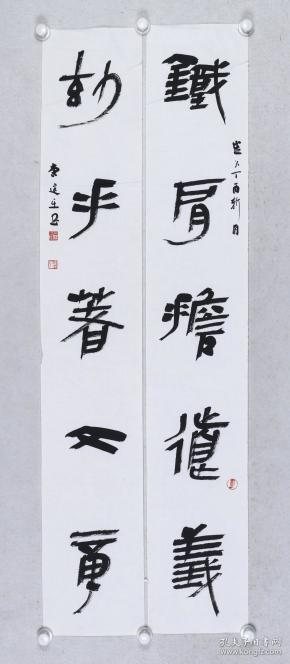 鐵肩擔道義
歲次丁酉新月
妙手著文章
孔夫子旧书网
kongfz.com